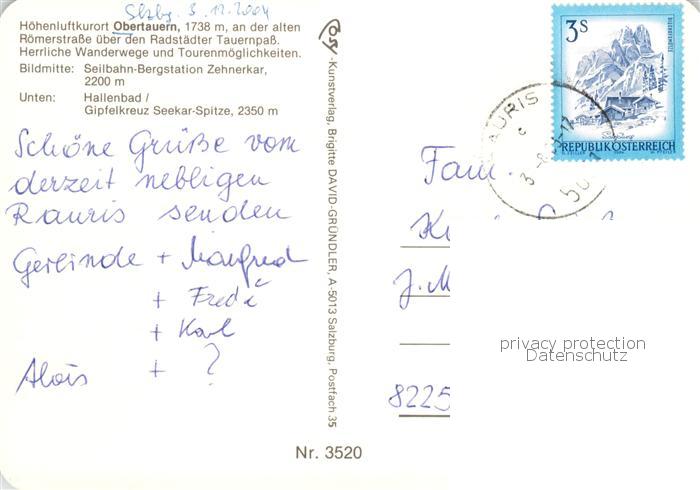 Slzbg. 3.12.2004
Höhenluftkurort Obertauern, 1738 m, an der alten
Römerstraße über den Radstädter Tauernpaß.
Herrliche Wanderwege und Tourenmöglichkeiten.
Bildmitte: Seilbahn-Bergstation Zehnerkar,
2200 m
Unten: Hallenbad /
Gipfelkreuz Seekar-Spitze, 2350 m
Schöne Grüße vom
derzeit nebligen
Rauris senden
Gerlinde + Manfred
+ Fredi
+ Karl
Alois + ?
Cosy-Kunstverlag, Brigitte DAVID-GRÜNDLER, A-5013 Salzburg, Postfach 35
Nr. 3520
3S
REPUBLIK ÖSTERREICH
AURIS
Fam.
J. M
8225
privacy protection
Datenschutz